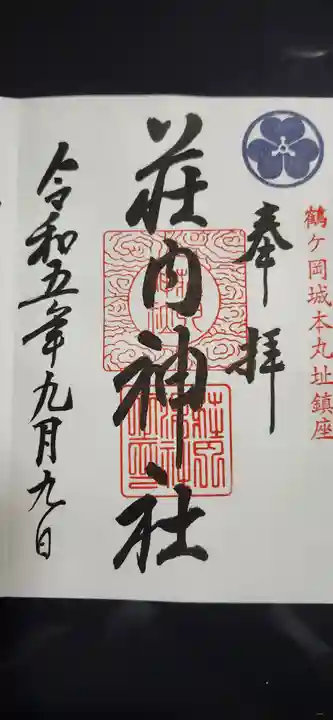 鶴ヶ岡城本丸址鎮座
奉拝
荘内神社
令和五年九月九日